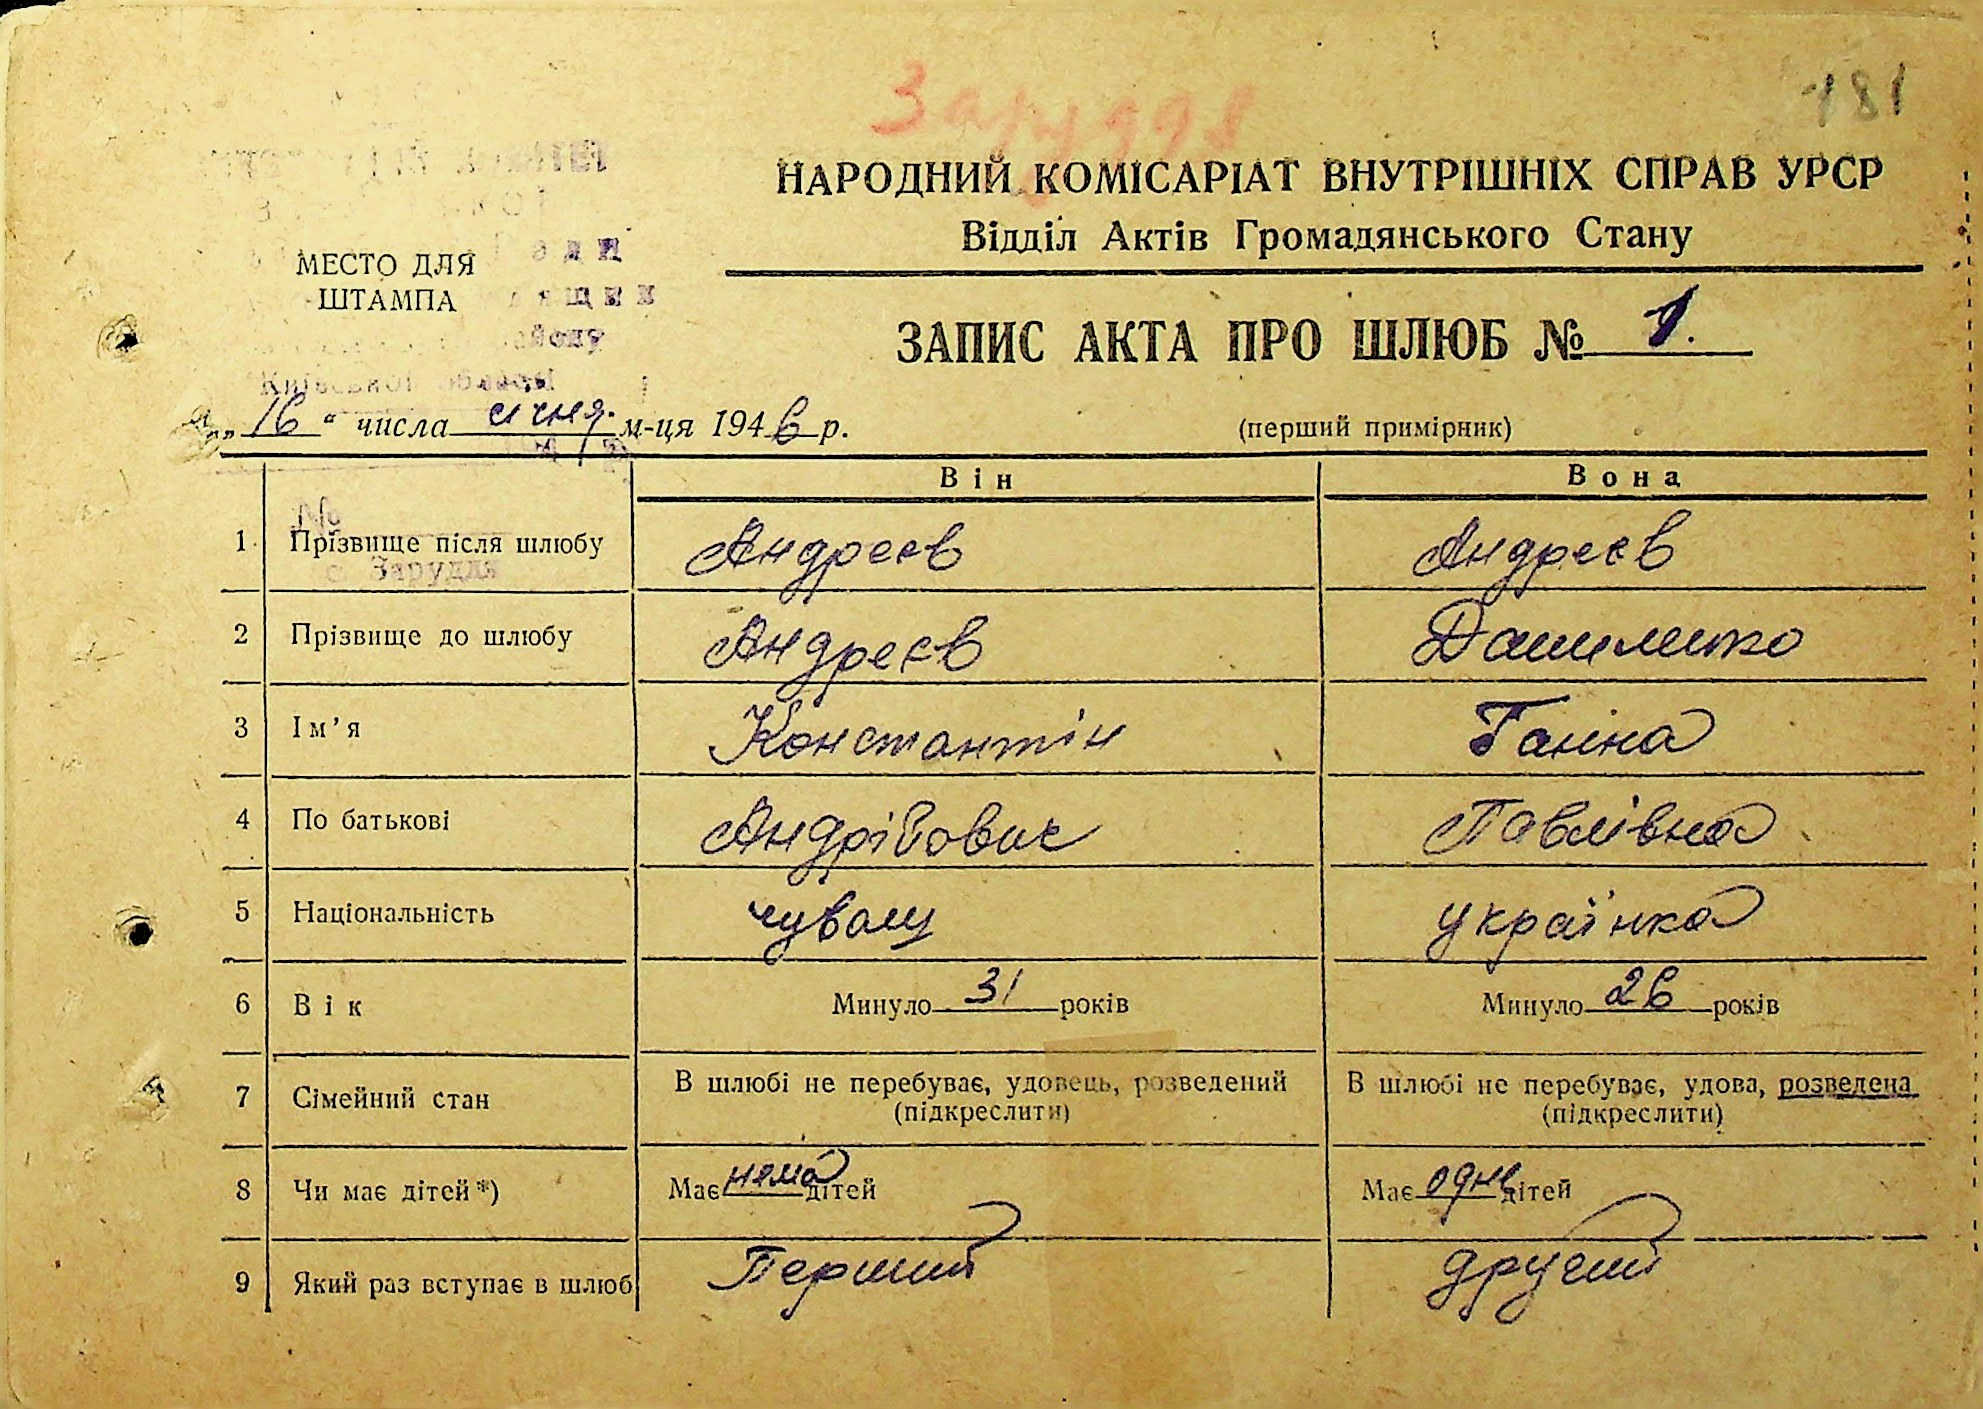 181
НАРОДНИЙ КОМІСАРІАТ ВНУТРІШНІХ СПРАВ УРСР
Відділ Актів Громадянського Стану
МЕСТО ДЛЯ
ШТАМПА
ЗАПИС АКТА ПРО ШЛЮБ № 1.
„16“ числа січня м-ця 1946 р.
(перший примірник)
Він Вона
1 Прізвище після шлюбу Андреєв Андреєв
с. Заруддя
2 Прізвище до шлюбу Андреєв Данилейко
3 Ім’я Константін Ганна
4 По батькові Андрійович Павлівна
5 Національність чуваш українка
6 Вік Минуло 31 років Минуло 26 років
7 Сімейний стан В шлюбі не перебуває, удовець, розведений В шлюбі не перебуває, удова, розведена
(підкреслити) (підкреслити)
8 Чи має дітей*) Має нема дітей Має одне дітей
9 Який раз вступає в шлюб Перший другий